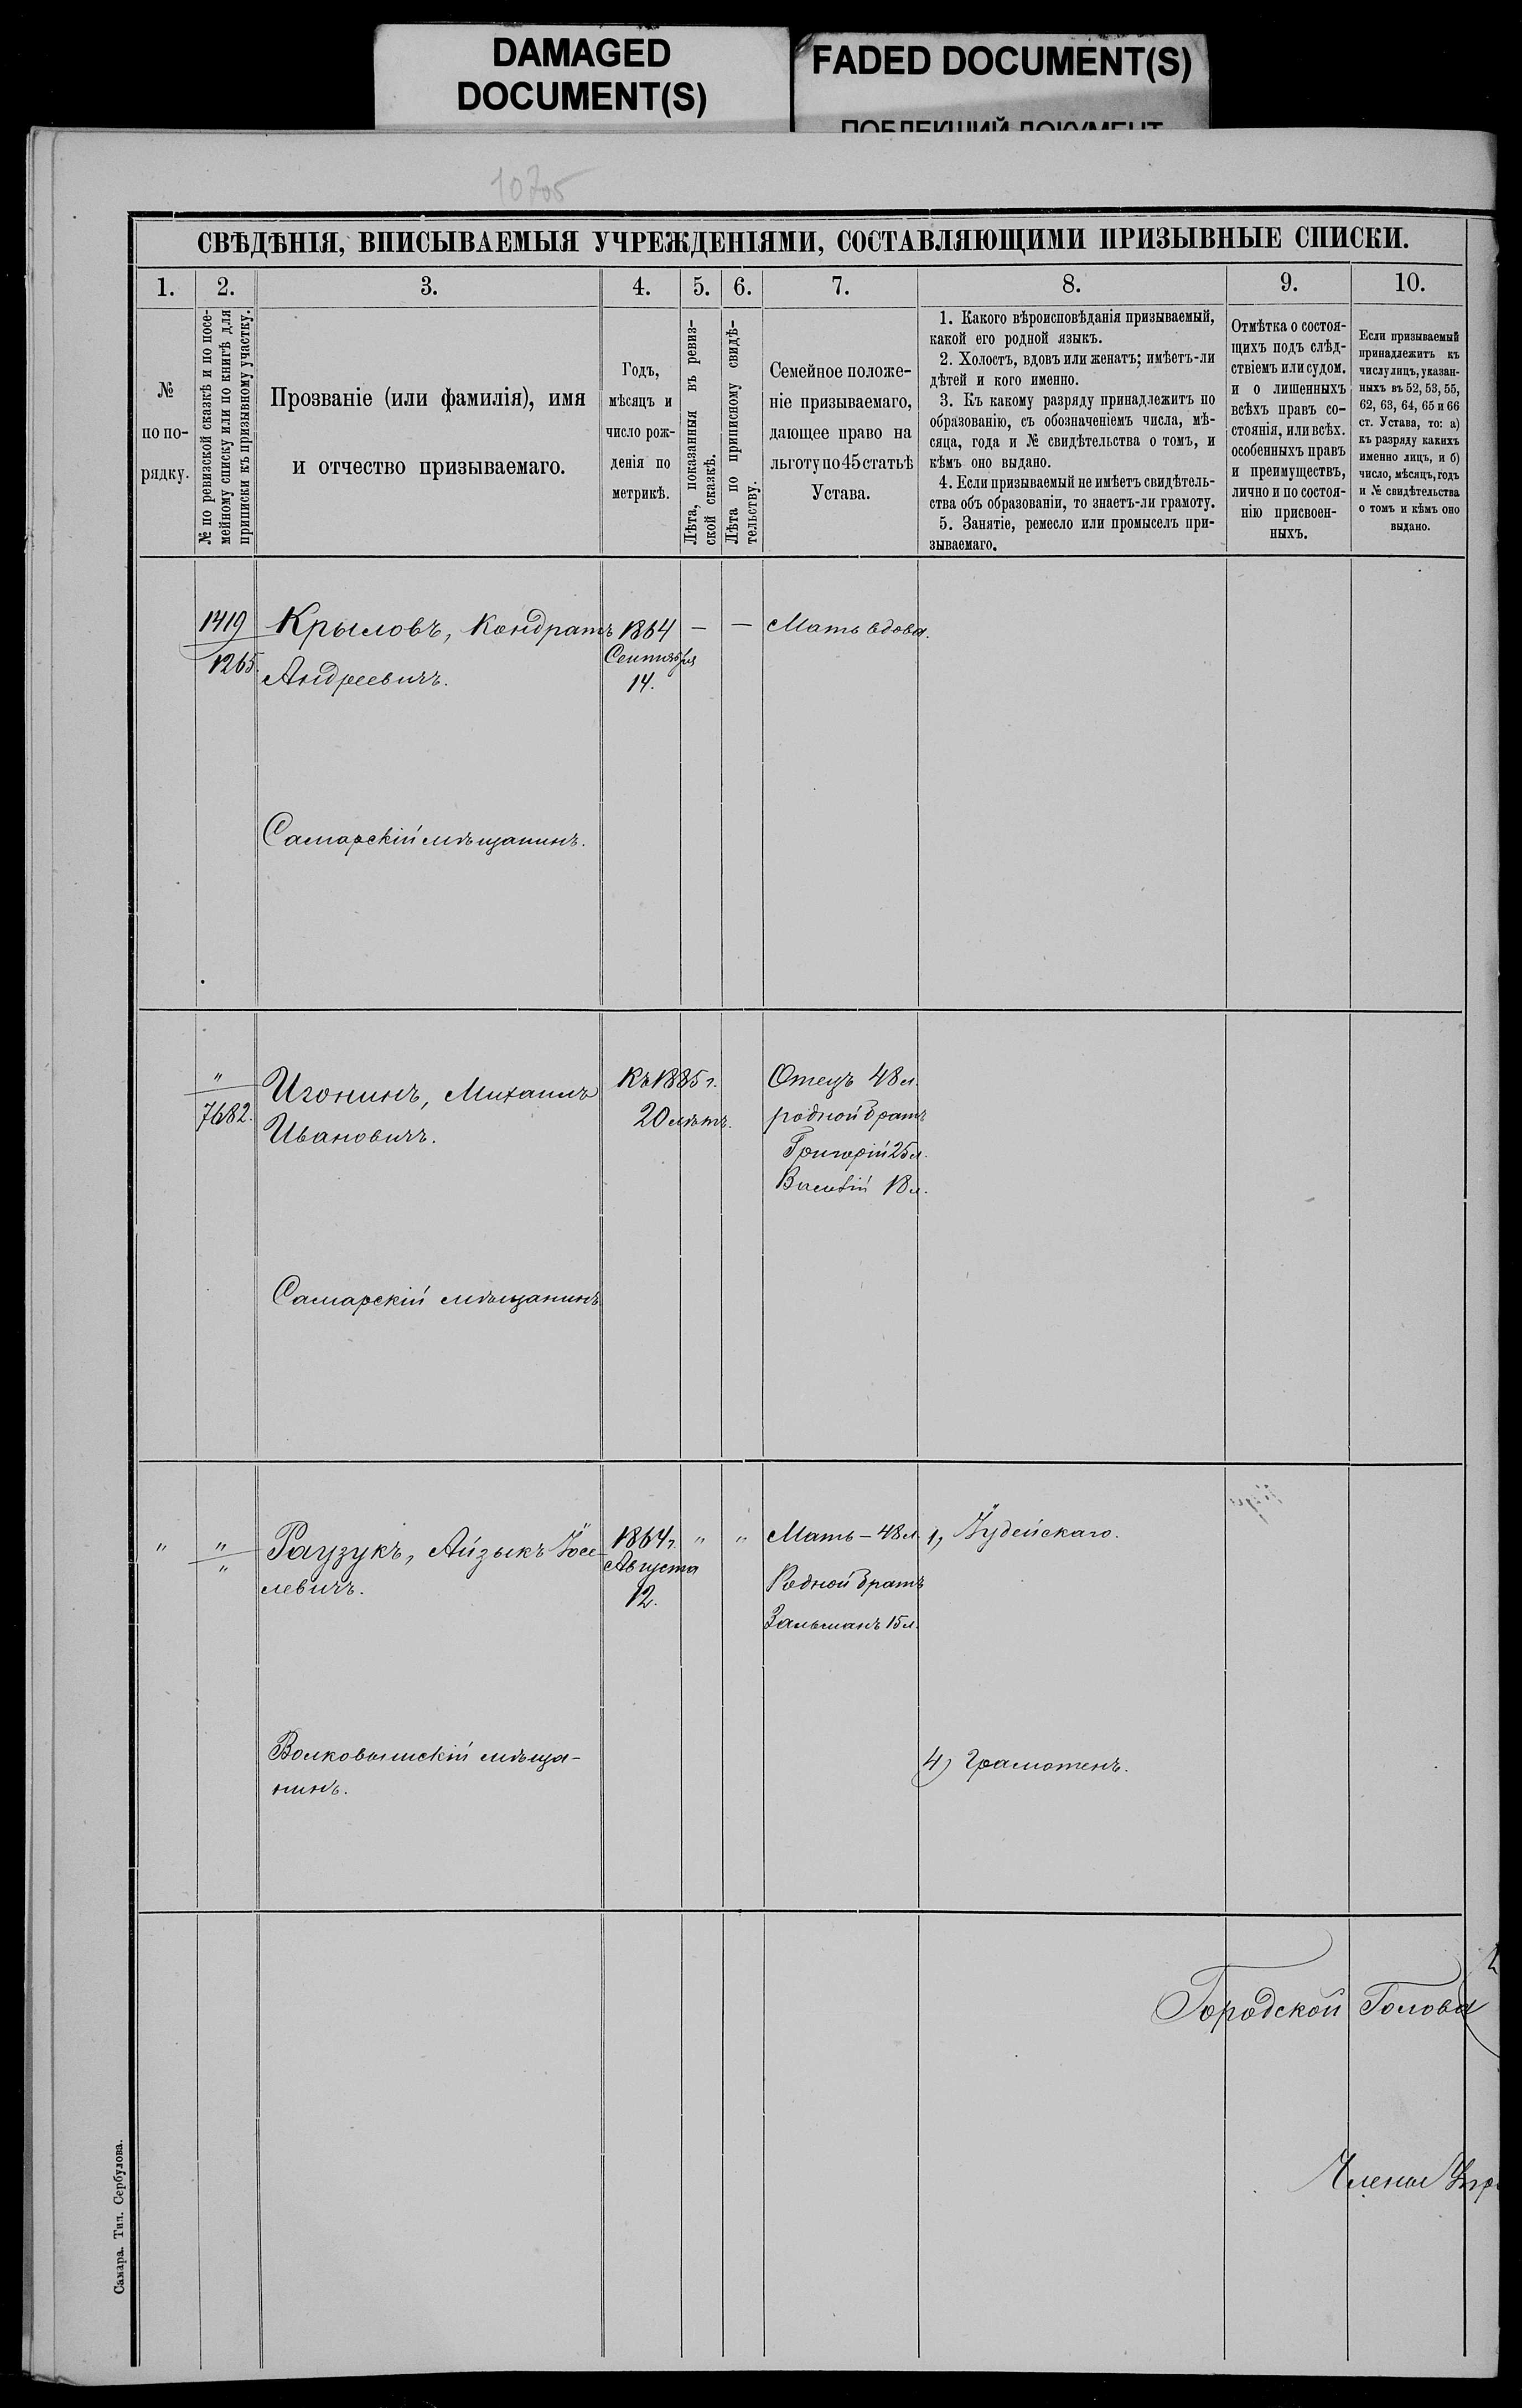 DAMAGED
DOCUMENT(S)
FADED DOCUMENT(S)
ПОБЛЕКШИЙ ДОКУМЕНТ
СВѢДѢНІЯ, ВПИСЫВАЕМЫЯ УЧРЕЖДЕНІЯМИ, СОСТАВЛЯЮЩИМИ ПРИЗЫВНЫЕ СПИСКИ.
1. 2. 3. 4. 5. 6. 7. 8. 9. 10.
№
по по-
рядку.
№ по ревизской сказкѣ и по посе-
мейному списку или по книгѣ для
приписки къ призывному участку.
Прозваніе (или фамилія), имя
и отчество призываемаго.
Годъ,
мѣсяцъ и
число рож-
денія по
метрикѣ.
Лѣта, показанныя въ ревиз-
ской сказкѣ.
Лѣта по приписному свидѣ-
тельству.
Семейное положе-
ніе призываемаго,
дающее право на
льготу по 45 статьѣ
Устава.
1. Какого вѣроисповѣданія призываемый,
какой его родной языкъ.
2. Холостъ, вдовъ или женатъ; имѣетъ-ли
дѣтей и кого именно.
3. Къ какому разряду принадлежитъ по
образованію, съ обозначеніемъ числа, мѣ-
сяца, года и № свидѣтельства о томъ, и
кѣмъ оно выдано.
4. Если призываемый не имѣетъ свидѣтель-
ства объ образованіи, то знаетъ-ли грамоту.
5. Занятіе, ремесло или промыселъ при-
зываемаго.
Отмѣтка о состоя-
щихъ подъ слѣд-
ствіемъ или судом.
и о лишенныхъ
всѣхъ правъ со-
стоянія, или всѣх.
особенныхъ правъ
и преимуществъ,
лично и по состоя-
нію присвоен-
ныхъ.
Если призываемый
принадлежитъ къ
числу лицъ, указан-
ныхъ въ 52, 53, 55,
62, 63, 64, 65 и 66
ст. Устава, то: а)
къ разряду какихъ
именно лицъ, и б)
число, мѣсяцъ, годъ
и № свидѣтельства
о томъ и кѣмъ оно
выдано.
1419
1265.
Крыловъ, Кондратъ
Андреевичъ.
1864
Сентября
14.
— —
Мать вдова.
Самарскій мѣщанинъ.
"
7682.
Игонинъ, Михаилъ
Ивановичъ.
Къ 1885 г.
20 лѣтъ.
Отецъ 48 л.
родной братъ
Григорій 25 л.
18 л.
Самарскій мѣщанинъ
" "
"
Раузукъ, Айзыкъ Іосе-
левичъ.
1864 г.
Августа
12.
" "
Мать – 48 л.
Родной братъ
Зальманъ 15 л.
1, Іудейскаго.
Волковышскій мѣща-
нинъ.
4) Грамотенъ.
Городской Голова
Члены
Самара. Тип. Сербулова.